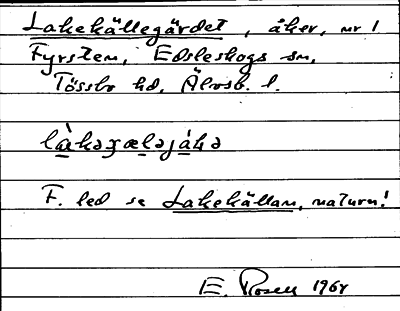 Lakekällegärdet, åker, nr 1
Fyrsten, Edsleskogs sn,
Tössbo hd, Älvsb. l.
F. led se Lakekällan, naturn!
E. Rosell 1964